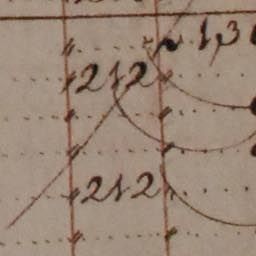 ~ 1,3
212
212